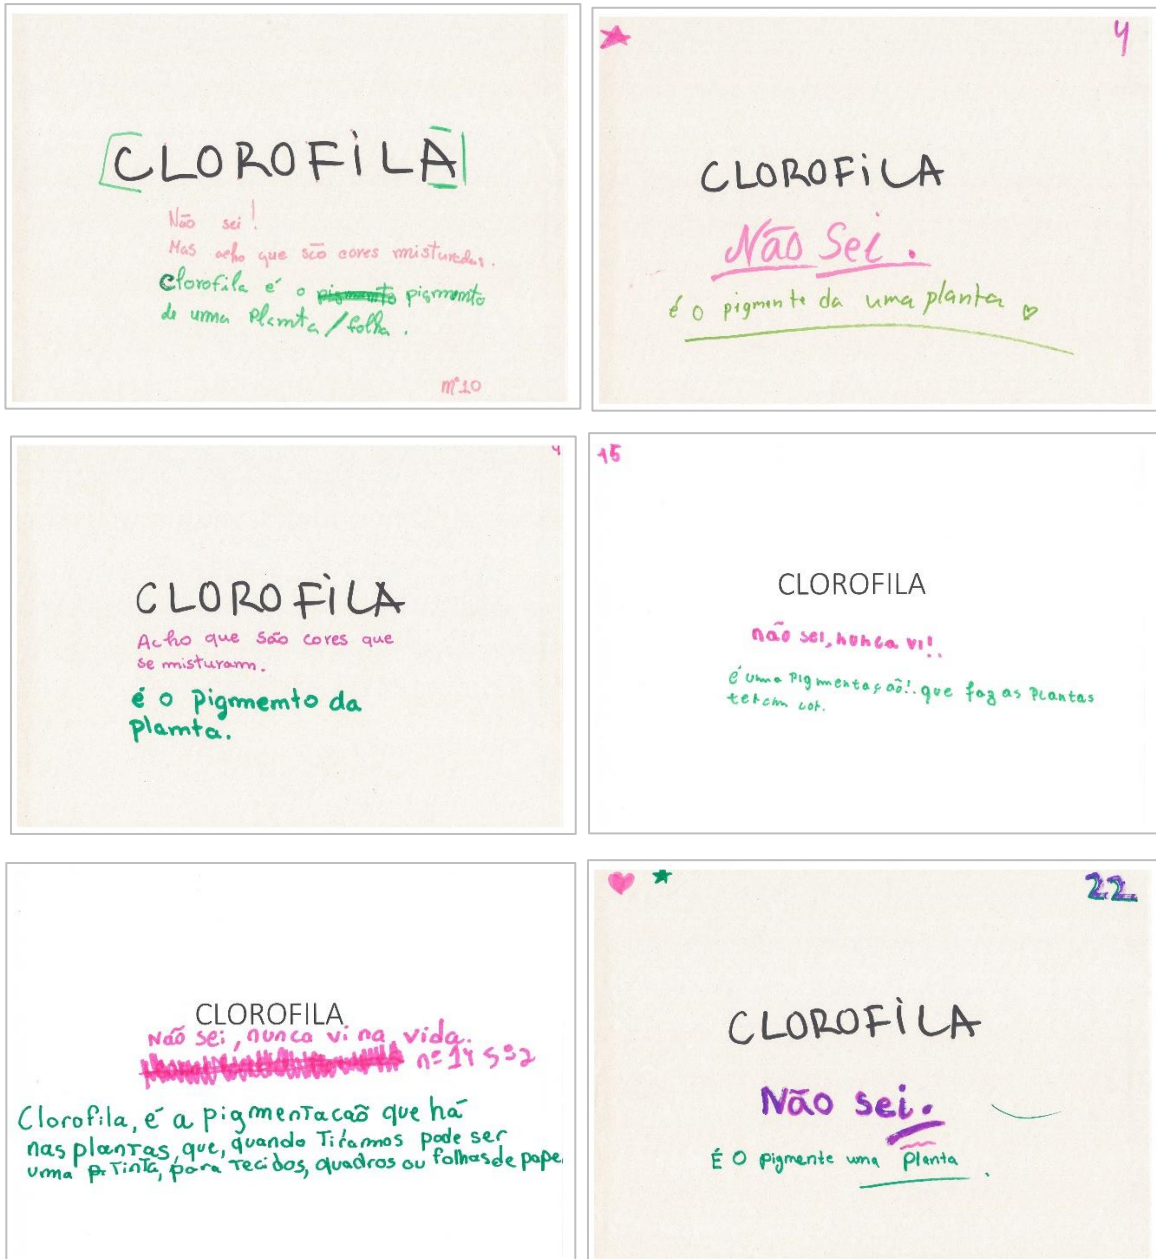 CLOROFiLA
Não sei!
Mas acho que são cores misturadas.
Clorofila é o pigmento
de uma Plamta/folha.
nº10
4
CLOROFiLA
Não Sei.
é o pigmente da uma planta
4
CLOROFiLA
Acho que são cores que
se misturam.
é o pigmemto da
plamta.
15
CLOROFILA
não sei, nunca vi!.
é uma Pigmentaçaõ!. que faz as Plantas
terem cor.
CLOROFILA
Não sei, nunca vi na vida.
nº 14 5º2
Clorofila, é a pigmentacaõ que há
nas plantas, que, quando Tiramos pode ser
uma Tinta, para Tecidos, quadros ou folhas de pape
22
CLOROFiLA
Não sei.
É O pigmente uma planta.